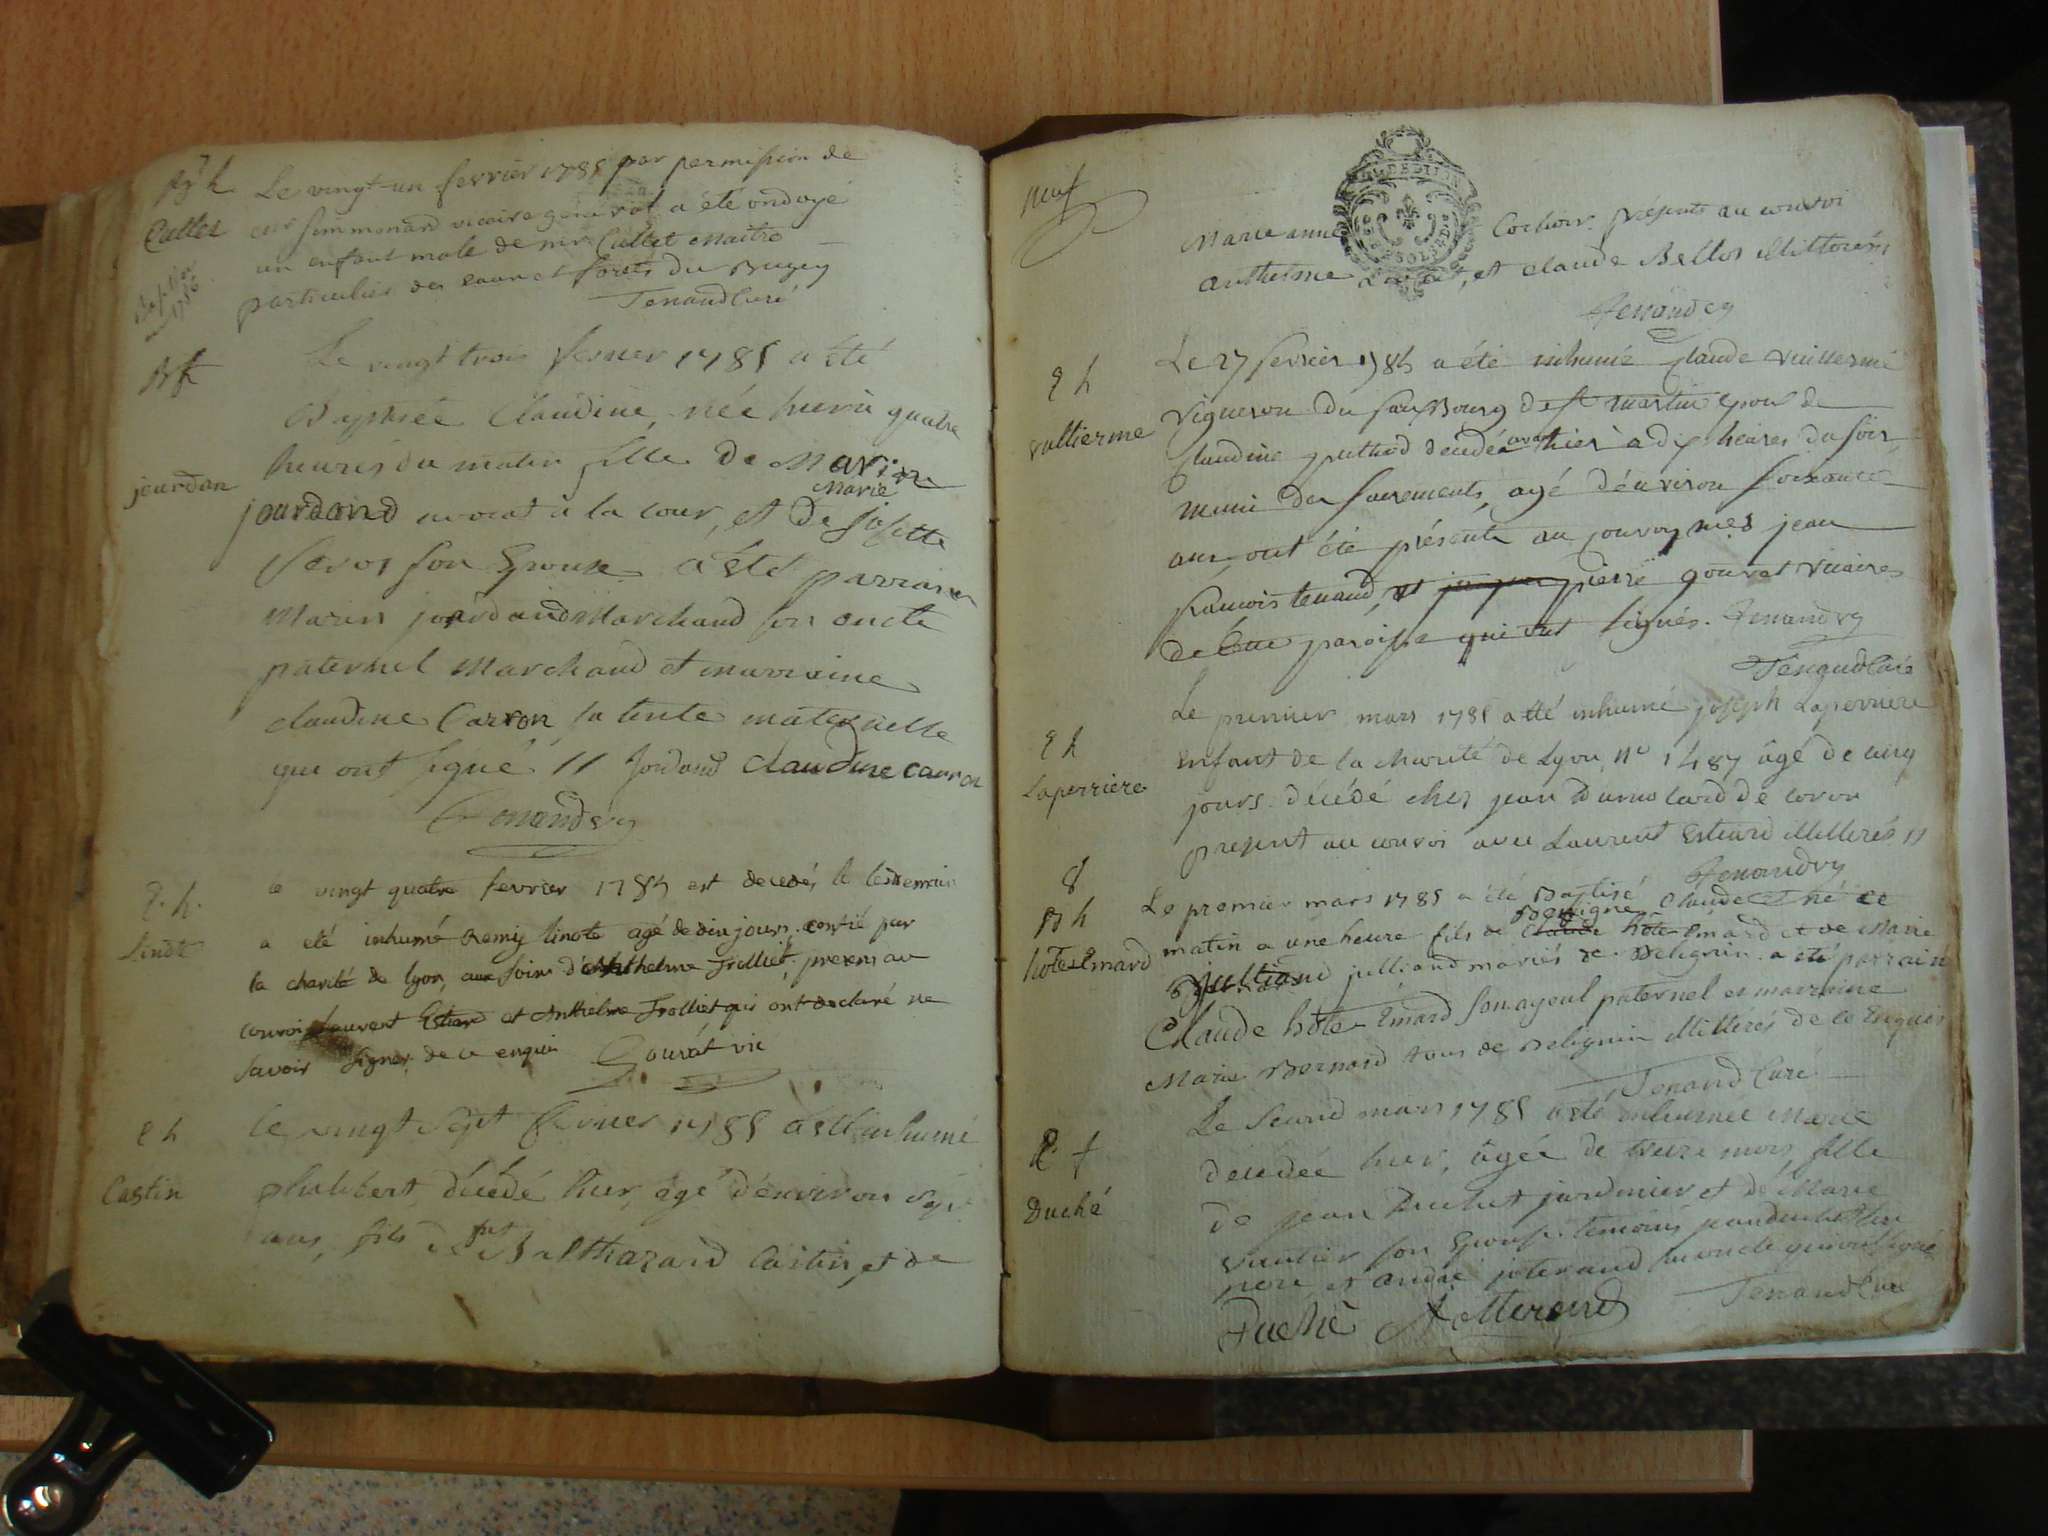 B h
Cullet
Le vingt-un fevrier 1785 par permission de
vicaire general a été ondoyé
un enfant male de mr Cullet Maitre
particulier des eaux et forêts du Bugey
Tenand Curé
Bapt.
1786
Bf
jourdan
Le vingt trois fevrier 1785 a été
Baptisée Claudine, née hier à quatre
heures du matin fille de Marin
Marie
jourdand avocat a la cour, et de josette
son Epouse a été parrain
Marin jourdand Marchand son oncle
paternel Marchand et marraine
claudine Carron sa tente maternelle
qui ont signé // Jordand claudine carron
Tenand vy
E. h.
Linote
le vingt quatre fevrier 1785 est decedé, le lendemain
a été inhumé Remy linote agé de dix jours, confié par
la charité de lyon, aux soins d'Anthelme Trolliet, presens au
convoi Laurent Estiard et Anthelme Trolliet qui ont declaré ne
savoir signer, de ce enquis Gourat vic
E h
Castin
le vingt sept fevrier 1785 a été inhumé
philibert, décédé hier, agé d'environ sept
ans, fils de fut Balthazard Castin, et de
neuf
Marie anne présents au convoi
anthelme et claude Bellos illitterés
Tenand vy
E h
vullierme
Le 27 fevrier 1785 a été inhumé Claude vuillerme
vigneron du fauxBourg de st martin Epoux de
Claudine decedé avant hier a dix heures du soir
muni des sacrements, agé d'environ soixante
ans, ont été présents au convoy mes jean
francois tenand, et pierre gourat vicaires
de cette paroisse qui ont signés. Tenand vy
Tenand Curé
E h
Laperriere
Le premier mars 1785 a été inhumé joseph Laperriere
enfant de la charité de Lyon, n° 1487 âgé de cinq
jours décédé chez jean Dumolard de coron
present au convoi avec Laurent Estiard illitterés //
Tenand vy
8
B h
hôte-Emard
Le premier mars 1785 a été Baptisé Claude né ce
matin a une heure fils de Claude Benigne hôte-Emard et de Marie
julliand mariés de Belignin a été parrain
Claude hôte-Emard son ayeul paternel et marraine
Marie Bernard tous de Belignin illitterés de ce enquis
Tenand Curé
E f
Duché
Le second mars 1785 a été inhumée Marie
decedée hier, âgée de treize mois, fille
de jean Duchet jardinier et de Marie
vautier son Epouse. temoins jean duchet son
pere et andré joterand son oncle qui ont signé
Tenand Curé
Duché